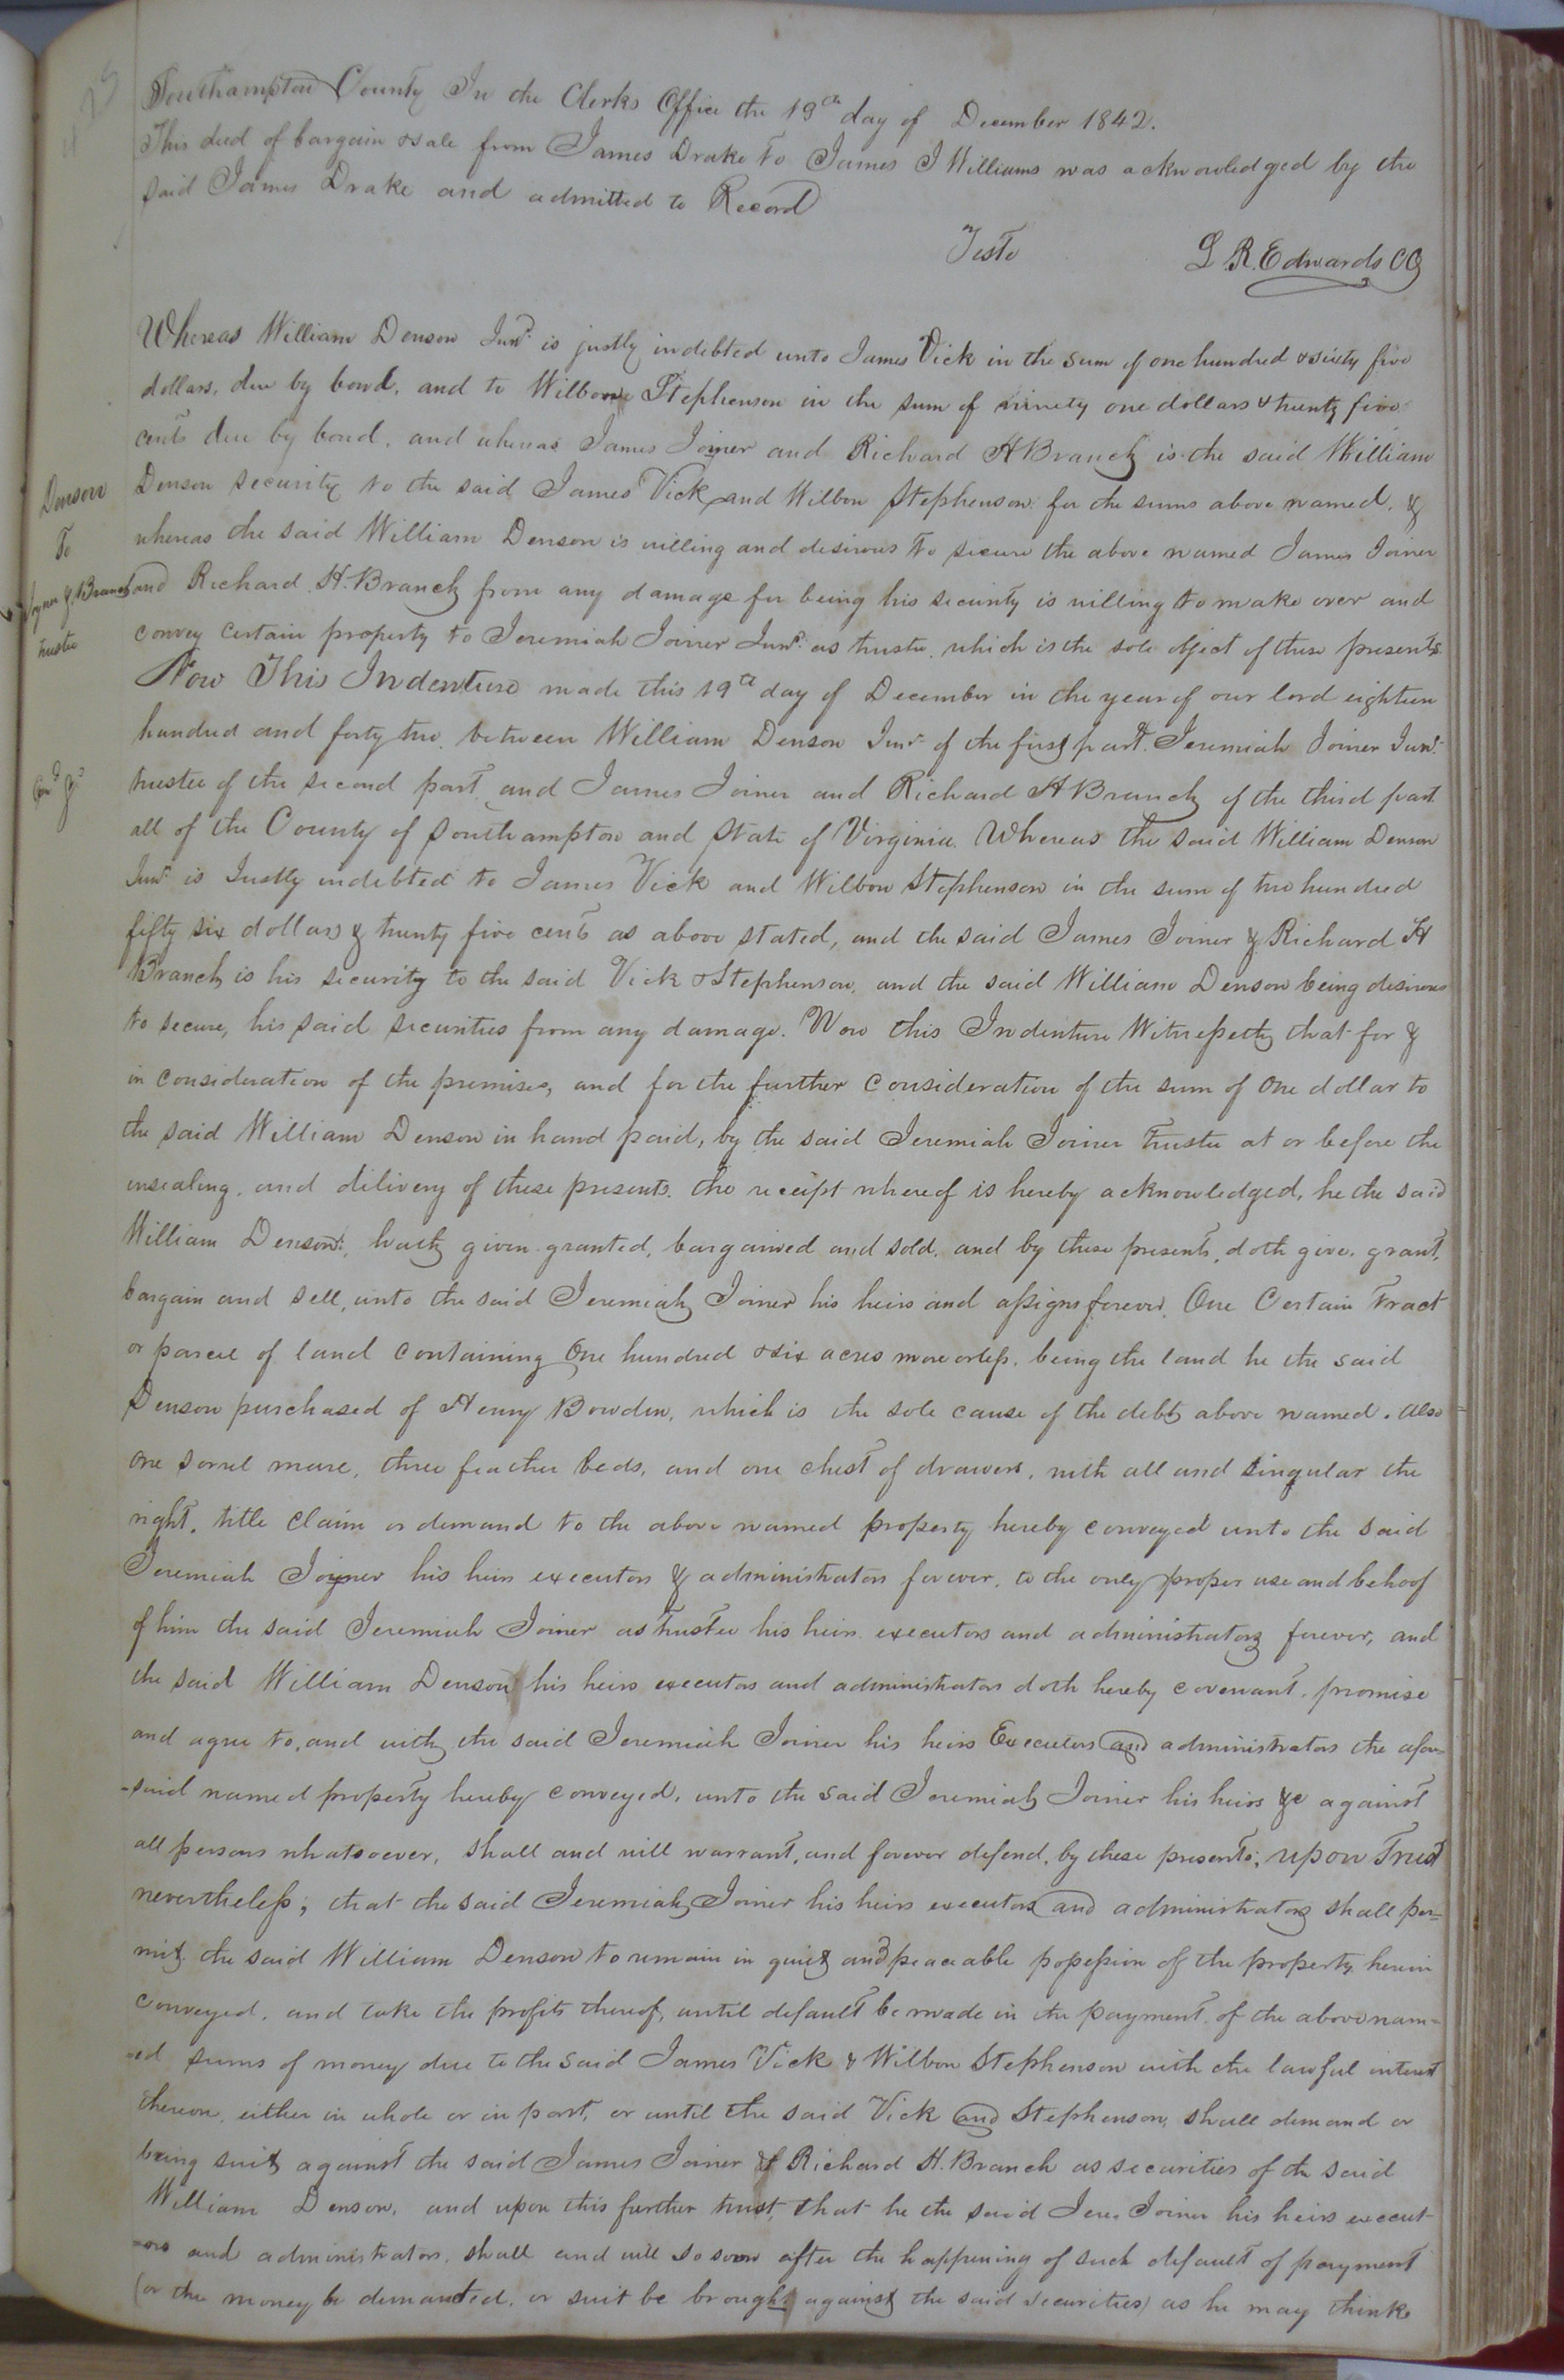 Southampton County In the Clerks Office the 19th day of December 1842.
This deed of bargain & sale from James Drake to James J Williams was acknowledged by the
said James Drake and admitted to Record
Teste L. R. Edwards CC
Whereas William Denson Junr. is justly indebted unto James Vick in the sum of one hundred & sixty five
dollars, due by bond, and to Wilbon Stephenson in the sum of ninety one dollars & twenty five
cents due by bond, and whereas James Joiner and Richard H Branch is the said William
Denson security to the said James Vick and Wilbon Stephenson for the sums above named, &
whereas the said William Denson is willing and desirous to secure the above named James Joiner
and Richard H. Branch from any damage for being his security is willing to make over and
convey certain property to Jeremiah Joiner Junr. as trustee, which is the sole object of these presents
Now This Indenture made this 19th day of December in the year of our lord eighteen
hundred and forty two, between William Denson Junr. of the first part, Jeremiah Joiner Junr.
trustee of the second part, and James Joiner and Richard H Branch of the third part
all of the County of Southampton and State of Virginia. Whereas the said William Denson
Junr. is Justly indebted to James Vick and Wilbon Stephenson in the sum of two hundred
fifty six dollars & twenty five cents as above stated, and the said James Joiner & Richard H
Branch is his security to the said Vick & Stephenson, and the said William Denson being desirous
to secure, his said securities from any damage. Now this Indenture Witnesseth that for &
in consideration of the premises, and for the further consideration of the sum of one dollar to
the said William Denson in hand paid, by the said Jeremiah Joiner Trustee at or before the
ensealing, and dilivery of these presents, the receipt whereof is hereby acknowledged, he the said
William Denson, hath given granted, bargained and sold, and by these presents, doth give, grant,
bargain and sell, unto the said Jeremiah Joiner his heirs and assigns forever, One Certain Tract
or parcel of land containing One hundred & six acres more or less, being the land he the said
Denson purchased of Henry Bowden, which is the sole cause of the debt above named. also
one sorrel mare, three feather beds, and one chest of drawers, with all and singular the
right, title claim or demand to the above named property hereby conveyed unto the said
Jeremiah Joyner his heirs executors & administrators forever, to the only proper use and behoof
of him the said Jeremiah Joiner as Trustee his heirs executors and administrators forever, and
the said William Denson his heirs executors and administrators doth hereby covenant, promise
and agree to, and with the said Jeremiah Joiner his heirs Executors and administrators the afore-
-said named property hereby conveyed, unto the said Jeremiah Joiner his heirs &c against
all persons whatsoever, shall and will warrant, and forever defend, by these presents; upon Trust
nevertheless; that the said Jeremiah Joiner his heirs executors and administrators shall per=
mit the said William Denson to remain in quiet and peaceable possession of the property herein
conveyed, and take the profits thereof, until default be made in the payment of the above nam=
=ed sums of money due to the said James Vick & Wilbon Stephenson with the lawful interest
thereon, either in whole or in part, or until the said Vick and Stephenson, shall demand or
bring suit against the said James Joiner & Richard H. Branch as securities of the said
William Denson, and upon this further trust, that he the said Jere. Joiner his heirs execut-
=ors and administrators, shall and will so soon after the happening of such default of payment
(or the money be demanded, or suit be brought against the said securities) as he may think
Denson
To
Joyner & Branch
trustee
Exd. &